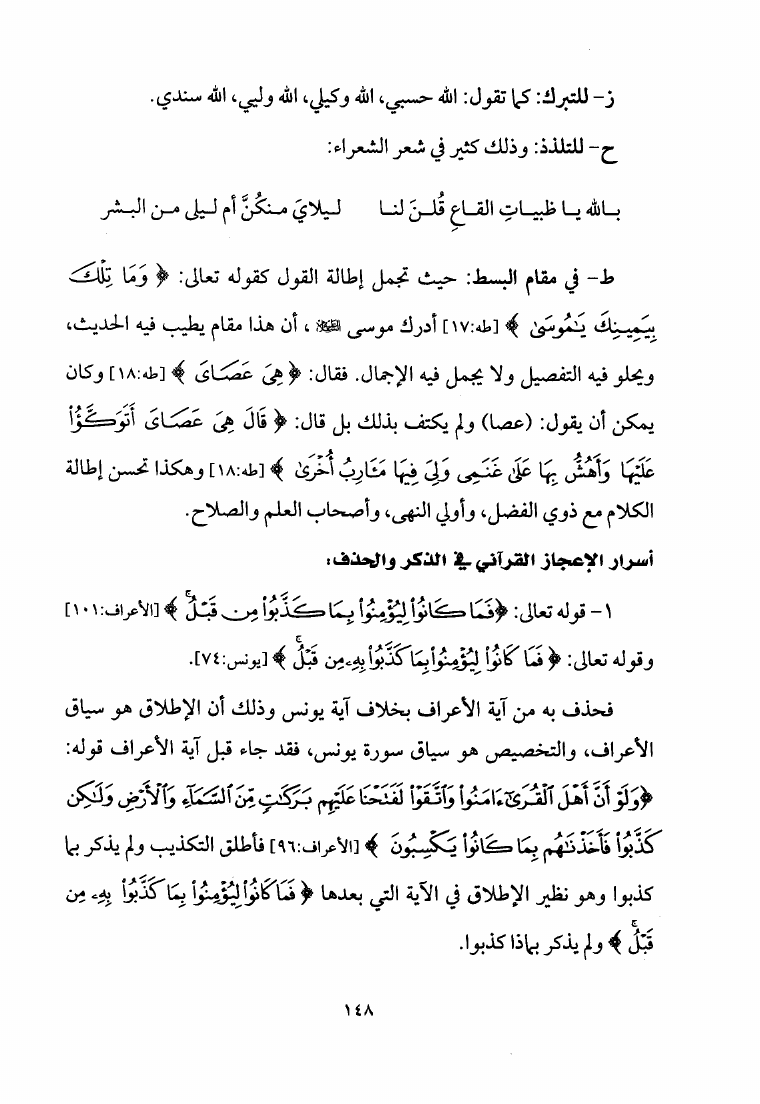 ز- للتبرك: كما تقول: الله حسبي، الله وكيلي، الله وليي، الله سندي.
ح- للتلذذ: وذلك كثير في شعر الشعراء:
بـالله يـا ظبيـاتِ القـاعِ قُلـنَ لنـا ليـلايَ مـنكُنَّ أم ليلى مـن البـشر
ط- في مقام البسط: حيث تجمل إطالة القول كقوله تعالى: ﴿ وَمَا تِلْكَ
بِيَمِينِكَ يَـٰمُوسَىٰ ﴾ [طه:١٧] أدرك موسى عليه السلام، أن هذا مقام يطيب فيه الحديث،
ويحلو فيه التفصيل ولا يجمل فيه الإجمال. فقال: ﴿ هِىَ عَصَاىَ ﴾ [طه:١٨] وكان
يمكن أن يقول: (عصا) ولم يكتف بذلك بل قال: ﴿ قَالَ هِىَ عَصَاىَ أَتَوَكَّؤُا۟
عَلَيْهَا وَأَهُشُّ بِهَا عَلَىٰ غَنَمِى وَلِىَ فِيهَا مَـَٔارِبُ أُخْرَىٰ ﴾ [طه:١٨] وهكذا تحسن إطالة
الكلام مع ذوي الفضل، وأولي النهى، وأصحاب العلم والصلاح.
أسرار الإعجاز القرآني في الذكر والحذف:
١- قوله تعالى: ﴿فَمَا كَانُوا۟ لِيُؤْمِنُوا۟ بِمَا كَذَّبُوا۟ مِن قَبْلُ ۚ ﴾ [الأعراف:١٠١]
وقوله تعالى: ﴿ فَمَا كَانُوا۟ لِيُؤْمِنُوا۟ بِمَا كَذَّبُوا۟ بِهِۦ مِن قَبْلُ ۚ ﴾ [يونس:٧٤].
فحذف به من آية الأعراف بخلاف آية يونس وذلك أن الإطلاق هو سياق
الأعراف، والتخصيص هو سياق سورة يونس، فقد جاء قبل آية الأعراف قوله:
﴿وَلَوْ أَنَّ أَهْلَ ٱلْقُرَىٰٓ ءَامَنُوا۟ وَٱتَّقَوْا۟ لَفَتَحْنَا عَلَيْهِم بَرَكَـٰتٍ مِّنَ ٱلسَّمَآءِ وَٱلْأَرْضِ وَلَـٰكِن
كَذَّبُوا۟ فَأَخَذْنَـٰهُم بِمَا كَانُوا۟ يَكْسِبُونَ ﴾ [الأعراف:٩٦] فأطلق التكذيب ولم يذكر بما
كذبوا وهو نظير الإطلاق في الآية التي بعدها ﴿ فَمَا كَانُوا۟ لِيُؤْمِنُوا۟ بِمَا كَذَّبُوا۟ بِهِۦ مِن
قَبْلُ ۚ ﴾ ولم يذكر بماذا كذبوا.
١٤٨